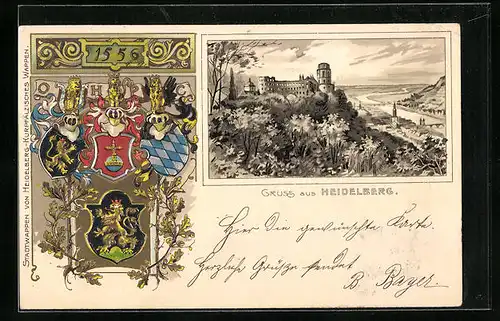 STADTWAPPEN VON HEIDELBERG-KURPFÄLZISCHES WAPPEN.
1556
O H P C
GRUSS AUS HEIDELBERG.
Hier die gewünschte Karte.
Herzliche Grüße sendet
B. Bayer.